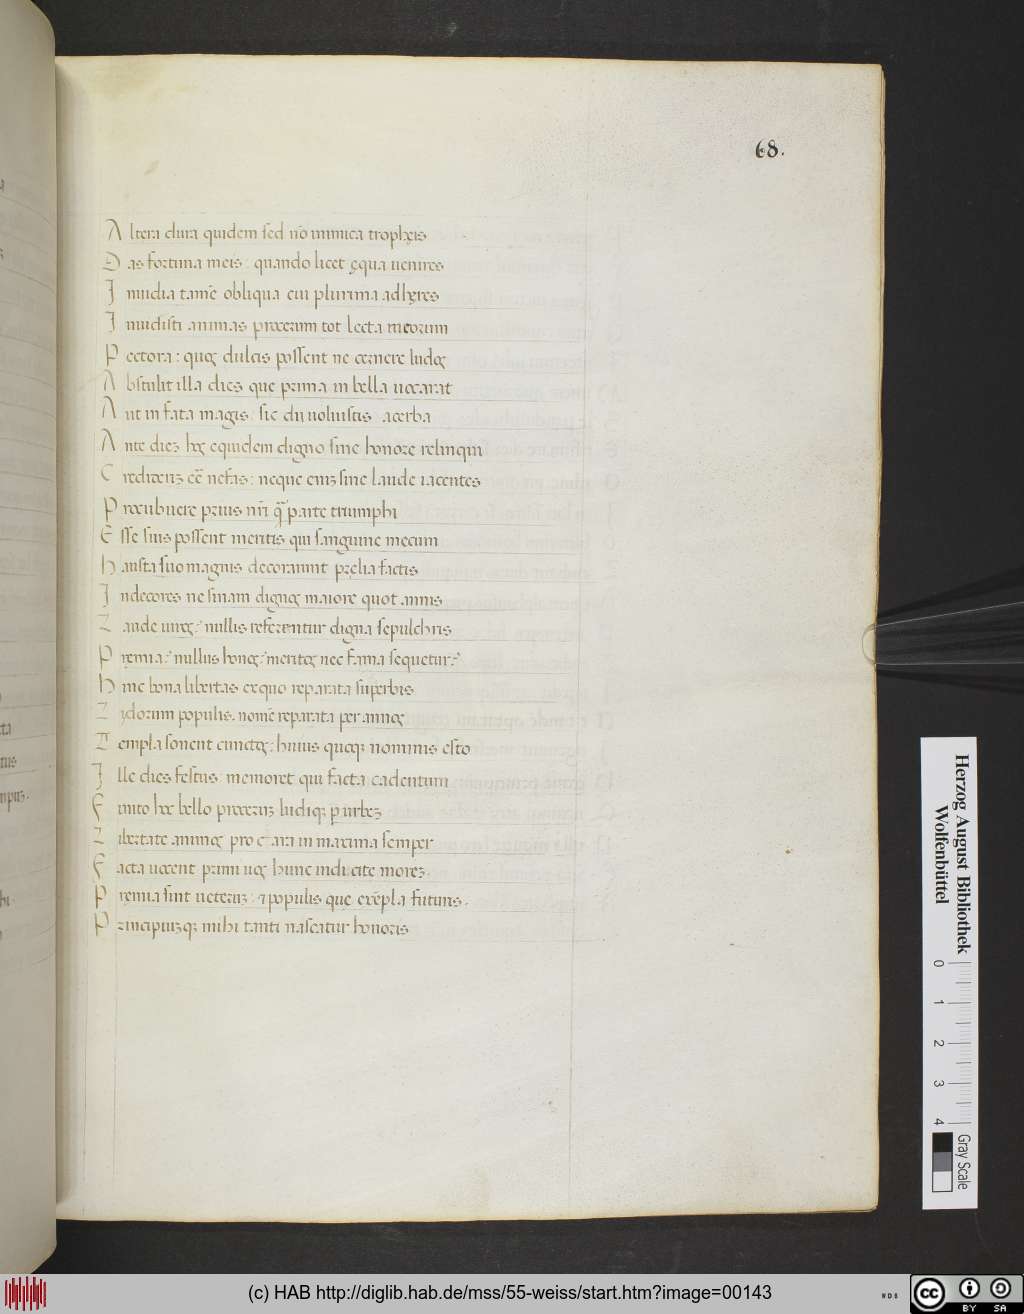 68.
Altera dura quidem sed nō inimica trophęis
Das fortuna meis : quando licet ęqua uenires
Inuidia tamē obliqua cui plurima adhęres
Inuidisti animas procerum tot lecta meorum
Pectora : quę dulcis possent ne cernere ludos
Abstulit illa dies que prima in bella uocarat
Aut in fata magis : sic diuoluistis acerba
Ante diez hęc equidem digno sine honore relinqui
Credideriz eē nefas : neque eniz sine laude iacentes
Procubuere prius nr̄i q̄ parte triumphi
Esse suis possent meritis qui sanguine mecum
hausta suo magnis decorarunt prelia factis
Indecores ne sinam dignos maiore quot annis
Laude uiros : nullis referentur digna sepulchris
Pręmia : nullus honos : meritos nec fama sequetur
hinc bona libertas ex quo reparata superbis
Lydorum populis. nomē reparata per annos
Templa sonent cunctos : huius quoq nominis esto
Ille dies festus : memoret qui facta cadentum
Finito hoc bello proceruz ludiq p urbez
Libertate animos pro cara in maxima semper
Facta uocent primi uos hunc indicite morez.
Premia sint ueteruz : ⁊ populis que exēpla futuris.
Principiuzq mihi tanti nascatur honoris
Herzog August Bibliothek
Wolfenbüttel
0 1 2 3 4
Gray Scale
(c) HAB http://diglib.hab.de/mss/55-weiss/start.htm?image=00143
WDB
cc BY SA